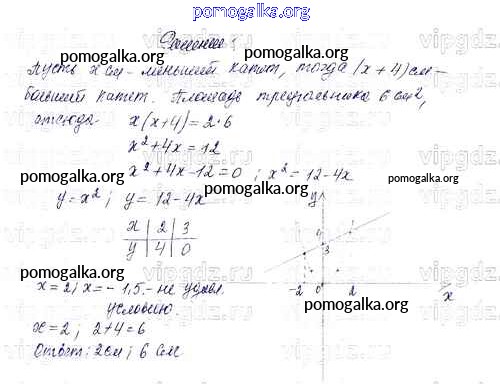 pomogalka.org
Решение:
pomogalka.org pomogalka.org pomogalka.org
Пусть x см - меньший катет, тогда (x + 4) см -
больший катет. Площадь треугольника 6 см²,
отсюда x(x+4) = 2·6
x² + 4x = 12
x² + 4x - 12 = 0 ; x² = 12 - 4x
y = x² ; y = 12 - 4x
x | 2 | 3
y | 4 | 0
x = 2 ; x = - 1,5 - не удовл.
условию.
x = 2 ; 2 + 4 = 6
Ответ: 2 см ; 6 см
y
4
3
-2 0 2 x
pomogalka.org
pomogalka.org
pomogalka.org
pomogalka.org
pomogalka.org
pomogalka.org
vipgdz.ru